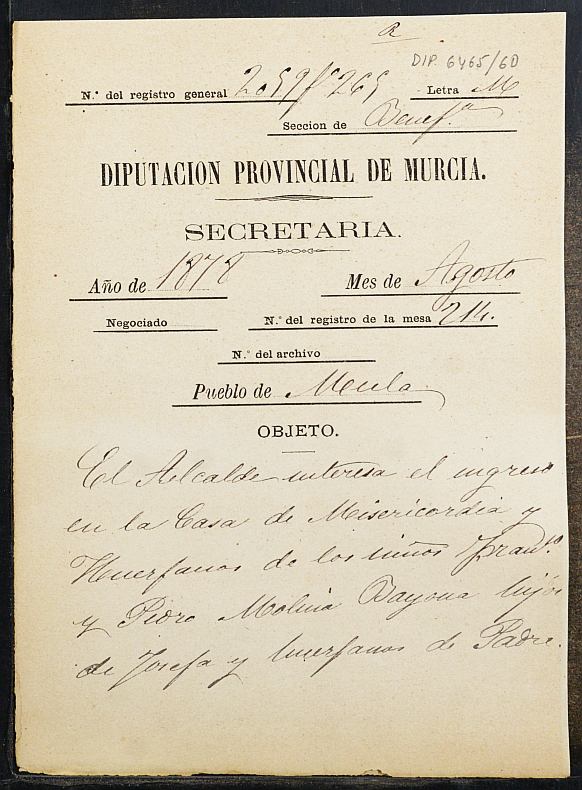 R
DIP. 6465/60
N.º del registro general 2059 fº 265 Letra M
Seccion de Benefª
DIPUTACION PROVINCIAL DE MURCIA.
SECRETARIA.
Año de 1878 Mes de Agosto
Negociado N.º del registro de la mesa 214.
N.º del archivo
Pueblo de Mula
OBJETO.
El Alcalde interesa el ingreso
en la Casa de Misericordia y
Huerfanos de los niños Franº
y Pedro Molina Bayona hijos
de Josefa y huerfanos de Padre.